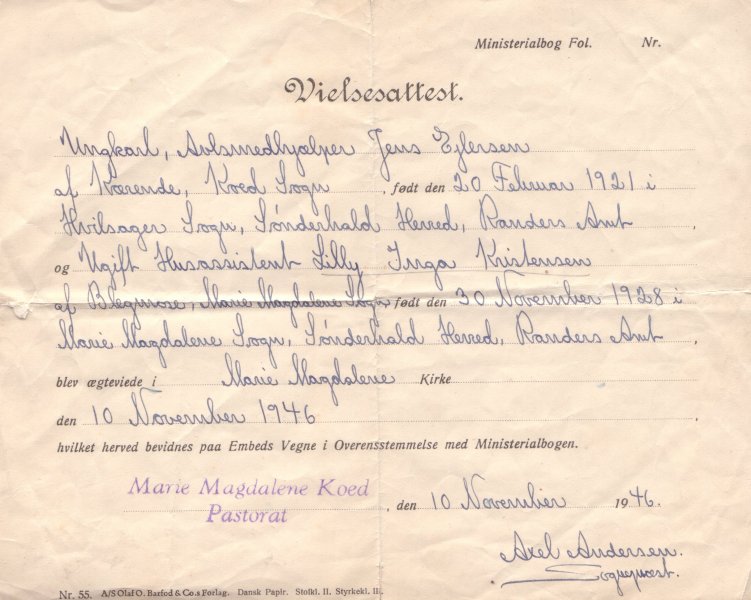 Ministerialbog Fol. Nr.
Vielsesattest.
Ungkarl, Avlsmedhjælper Jens Ejlersen
af Kærende, Koed Sogn, født den 20 Februar 1921 i
Hvilsager Sogn, Sønderhald Herred, Randers Amt,
og Ugift Husassistent Lilly Inga Kristensen
af Blegmose, Marie Magdalene Sogn, født den 30 November 1928 i
Marie Magdalene Sogn, Sønderhald Herred, Randers Amt,
blev ægteviede i Marie Magdalene Kirke
den 10 November 1946,
hvilket herved bevidnes paa Embeds Vegne i Overensstemmelse med Ministerialbogen.
Marie Magdalene Koed
Pastorat, den 10 November 1946.
Axel Andersen.
Sognepræst.
Nr. 55. A/S Olaf O. Barfod & Co.s Forlag. Dansk Papir. Stofkl. II. Styrkekl. III.